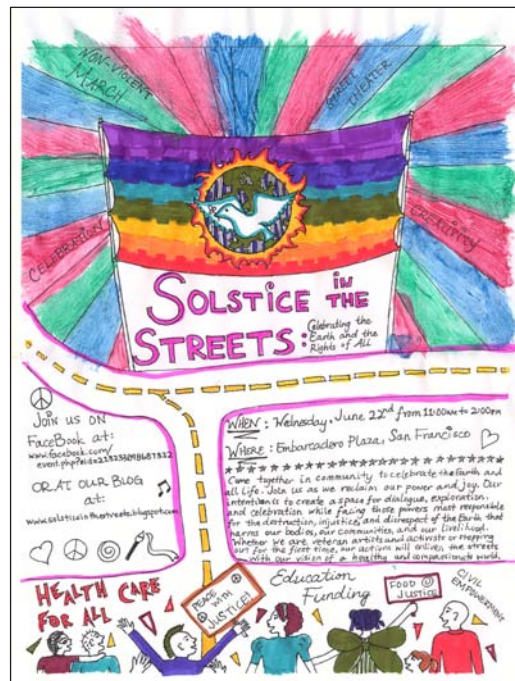 NON-VIOLENT
MARCH
STREET
THEATER
CELEBRATION
CREATIVITY
SOLSTICE in
THE
STREETS:
Celebrating the
Earth and the
Rights of All
JOIN US ON
FaceBook at:
www.facebook.com/
OR AT OUR BLOG
at:
www.solsticeinthestreets.blogspot.com
WHEN: Wednesday, June 22nd from 11:00AM to 2:00PM
WHERE: Embarcadero Plaza, San Francisco
Come together in community to celebrate the Earth and
all Life. Join us as we reclaim our power and Joy. Our
intention is to create a space for dialogue, exploration,
and celebration while facing those powers most responsible
for the destruction, injustice, and disrespect of the Earth that
harms our bodies, our communities, and our livelihood.
Whether we are veteran artists and activists or stepping
out for the first time, our actions will enliven the streets
with our vision of a healthy and compassionate world.
HEALTH CARE
FOR ALL
PEACE
WITH
JUSTICE!
Education
Funding
FOOD
JUSTICE
CIVIL
EMPOWERMENT